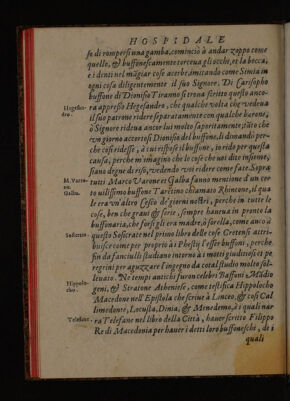 HOSPIDALE
se di rompersi una gamba, cominciò à andar zoppo come
quello, & buffonescamente torceua gli occhi, et la bocca,
e i denti nel māgiar cose acerbe, imitando come Simia in
ogni cosa diligentemente il suo Signore. Di Carisopho
buffone di Dionisio Tiranno si troua scritto questo anco-
Hegesan-
dro.
ra appresso Hegesandro, che qualche volta che vedeua
il suo patrone ridere separatamente con qualche barone,
ò Signore rideua ancor lui molto saporitamente; tāto che
vn giorno accortosi Dionisio del buffone, li dimandò per-
che cosi ridesse, à cui rispose il buffone, io rido per questa
causa, perche m'imagino che le cose che uoi dite insieme,
siano degne di riso, vedendo voi ridere come fate. Sopra
M. Varro-
ne.
Galba.
tutti Marco Varone et Galba fanno mentione d'un cer
to utilissimo buffone Tarētino chiamato Rhintone, il qua
le era vn'altro Cesio de' giorni nostri, perche in tutte le
cose, ben che graui & serie, sempre haueua in pronto la
buffonaria, che forsi gli era madre, ò sorella, come anco
Sosicrate
questo Sosicrate nel primo libro delle cose Cretensi attri-
buisce come per proprio à i Phestij l'esser buffoni, perche
fin da fanciulli studiano intorno à i motti giudiciosi et pe
regrini per aguzzare l'ingegno da cotal studio molto sol-
leuato. Ne' tempi antichi furon celebri Buffoni Mādio
Hippolo-
cho.
geni, & Stratone Atheniese, come testifica Hippolocho
Macedone nell'Epistola che scriue à Linceo, & cosi Cal
limedonte, Locusta, Dinia, & Menedemo, à i quali nar-
Telefane.
ra Telefane nel libro della Città, hauer scritto Filippo
Re di Macedonia per hauer i detti loro buffoneschi, de i
quali